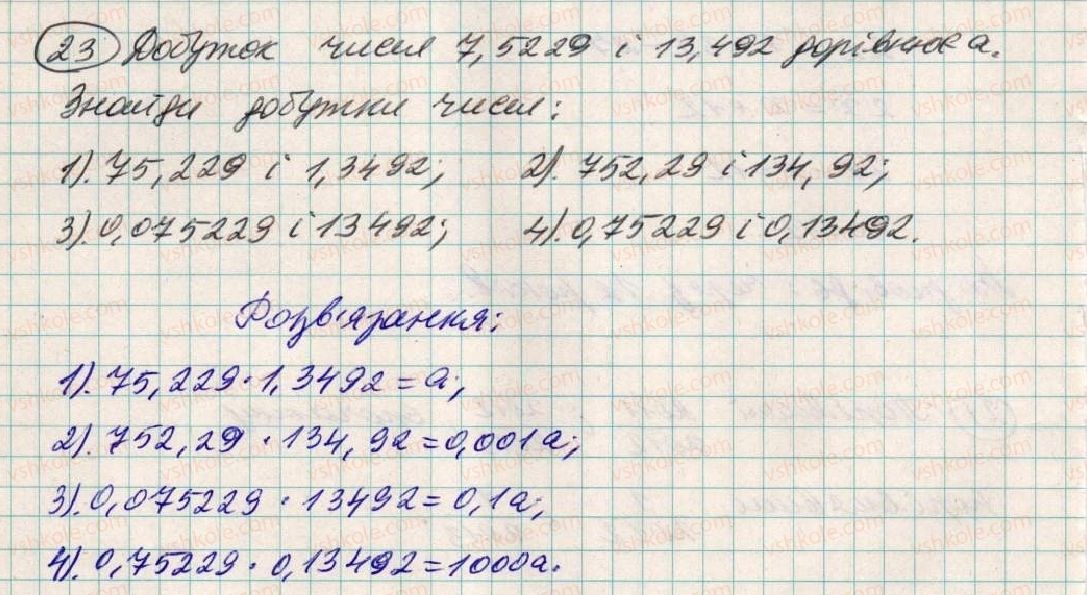 23 Добуток чисел 7,5229 і 13,492 дорівнює а.
Знайди добутки чисел:
1). 75,229 і 1,3492; 2). 752,29 і 134,92;
3). 0,075229 і 13492; 4). 0,75229 і 0,13492.
Розв'язання:
1). 75,229 · 1,3492 = а;
2). 752,29 · 134,92 = 0,001а;
3). 0,075229 · 13492 = 0,1а;
4). 0,75229 · 0,13492 = 1000а.